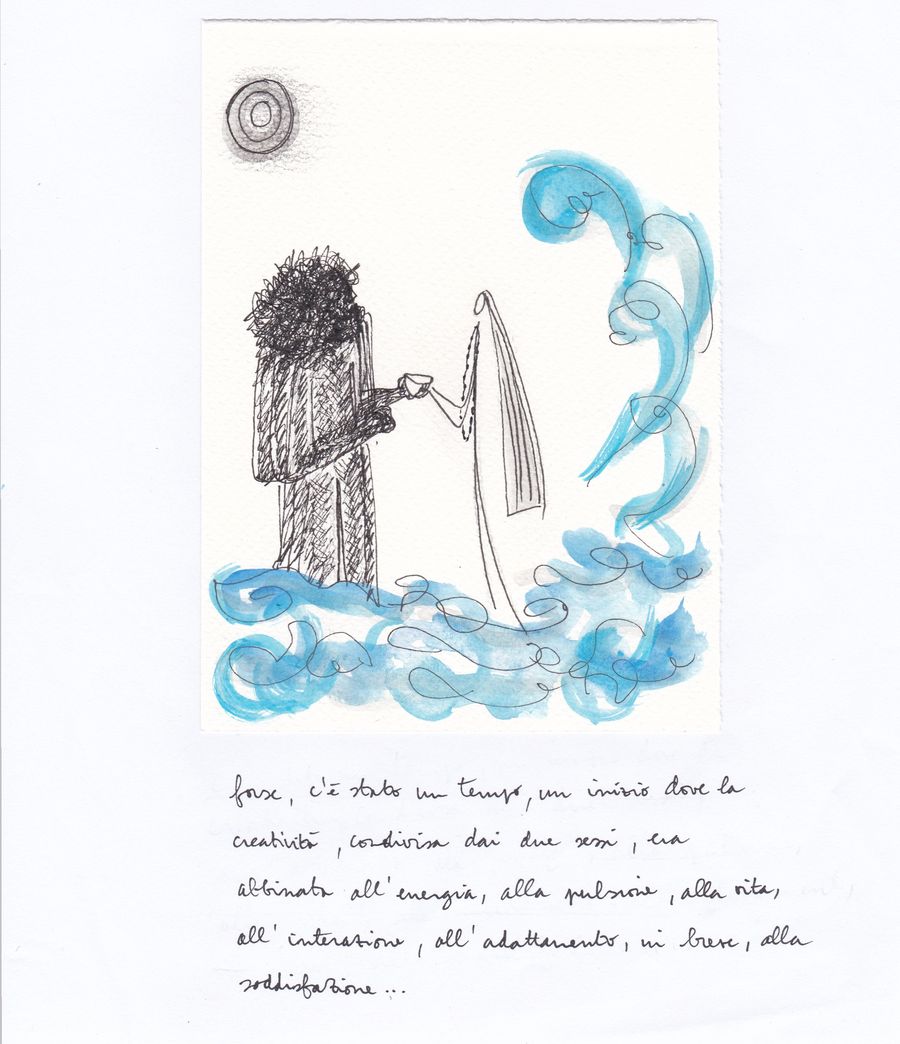 forse, c'è stato un tempo, un inizio dove la
creatività, condivisa dai due sessi, era
abbinata all'energia, alla pulsione, alla vita,
all'interazione, all'adattamento, in breve, alla
soddisfazione...